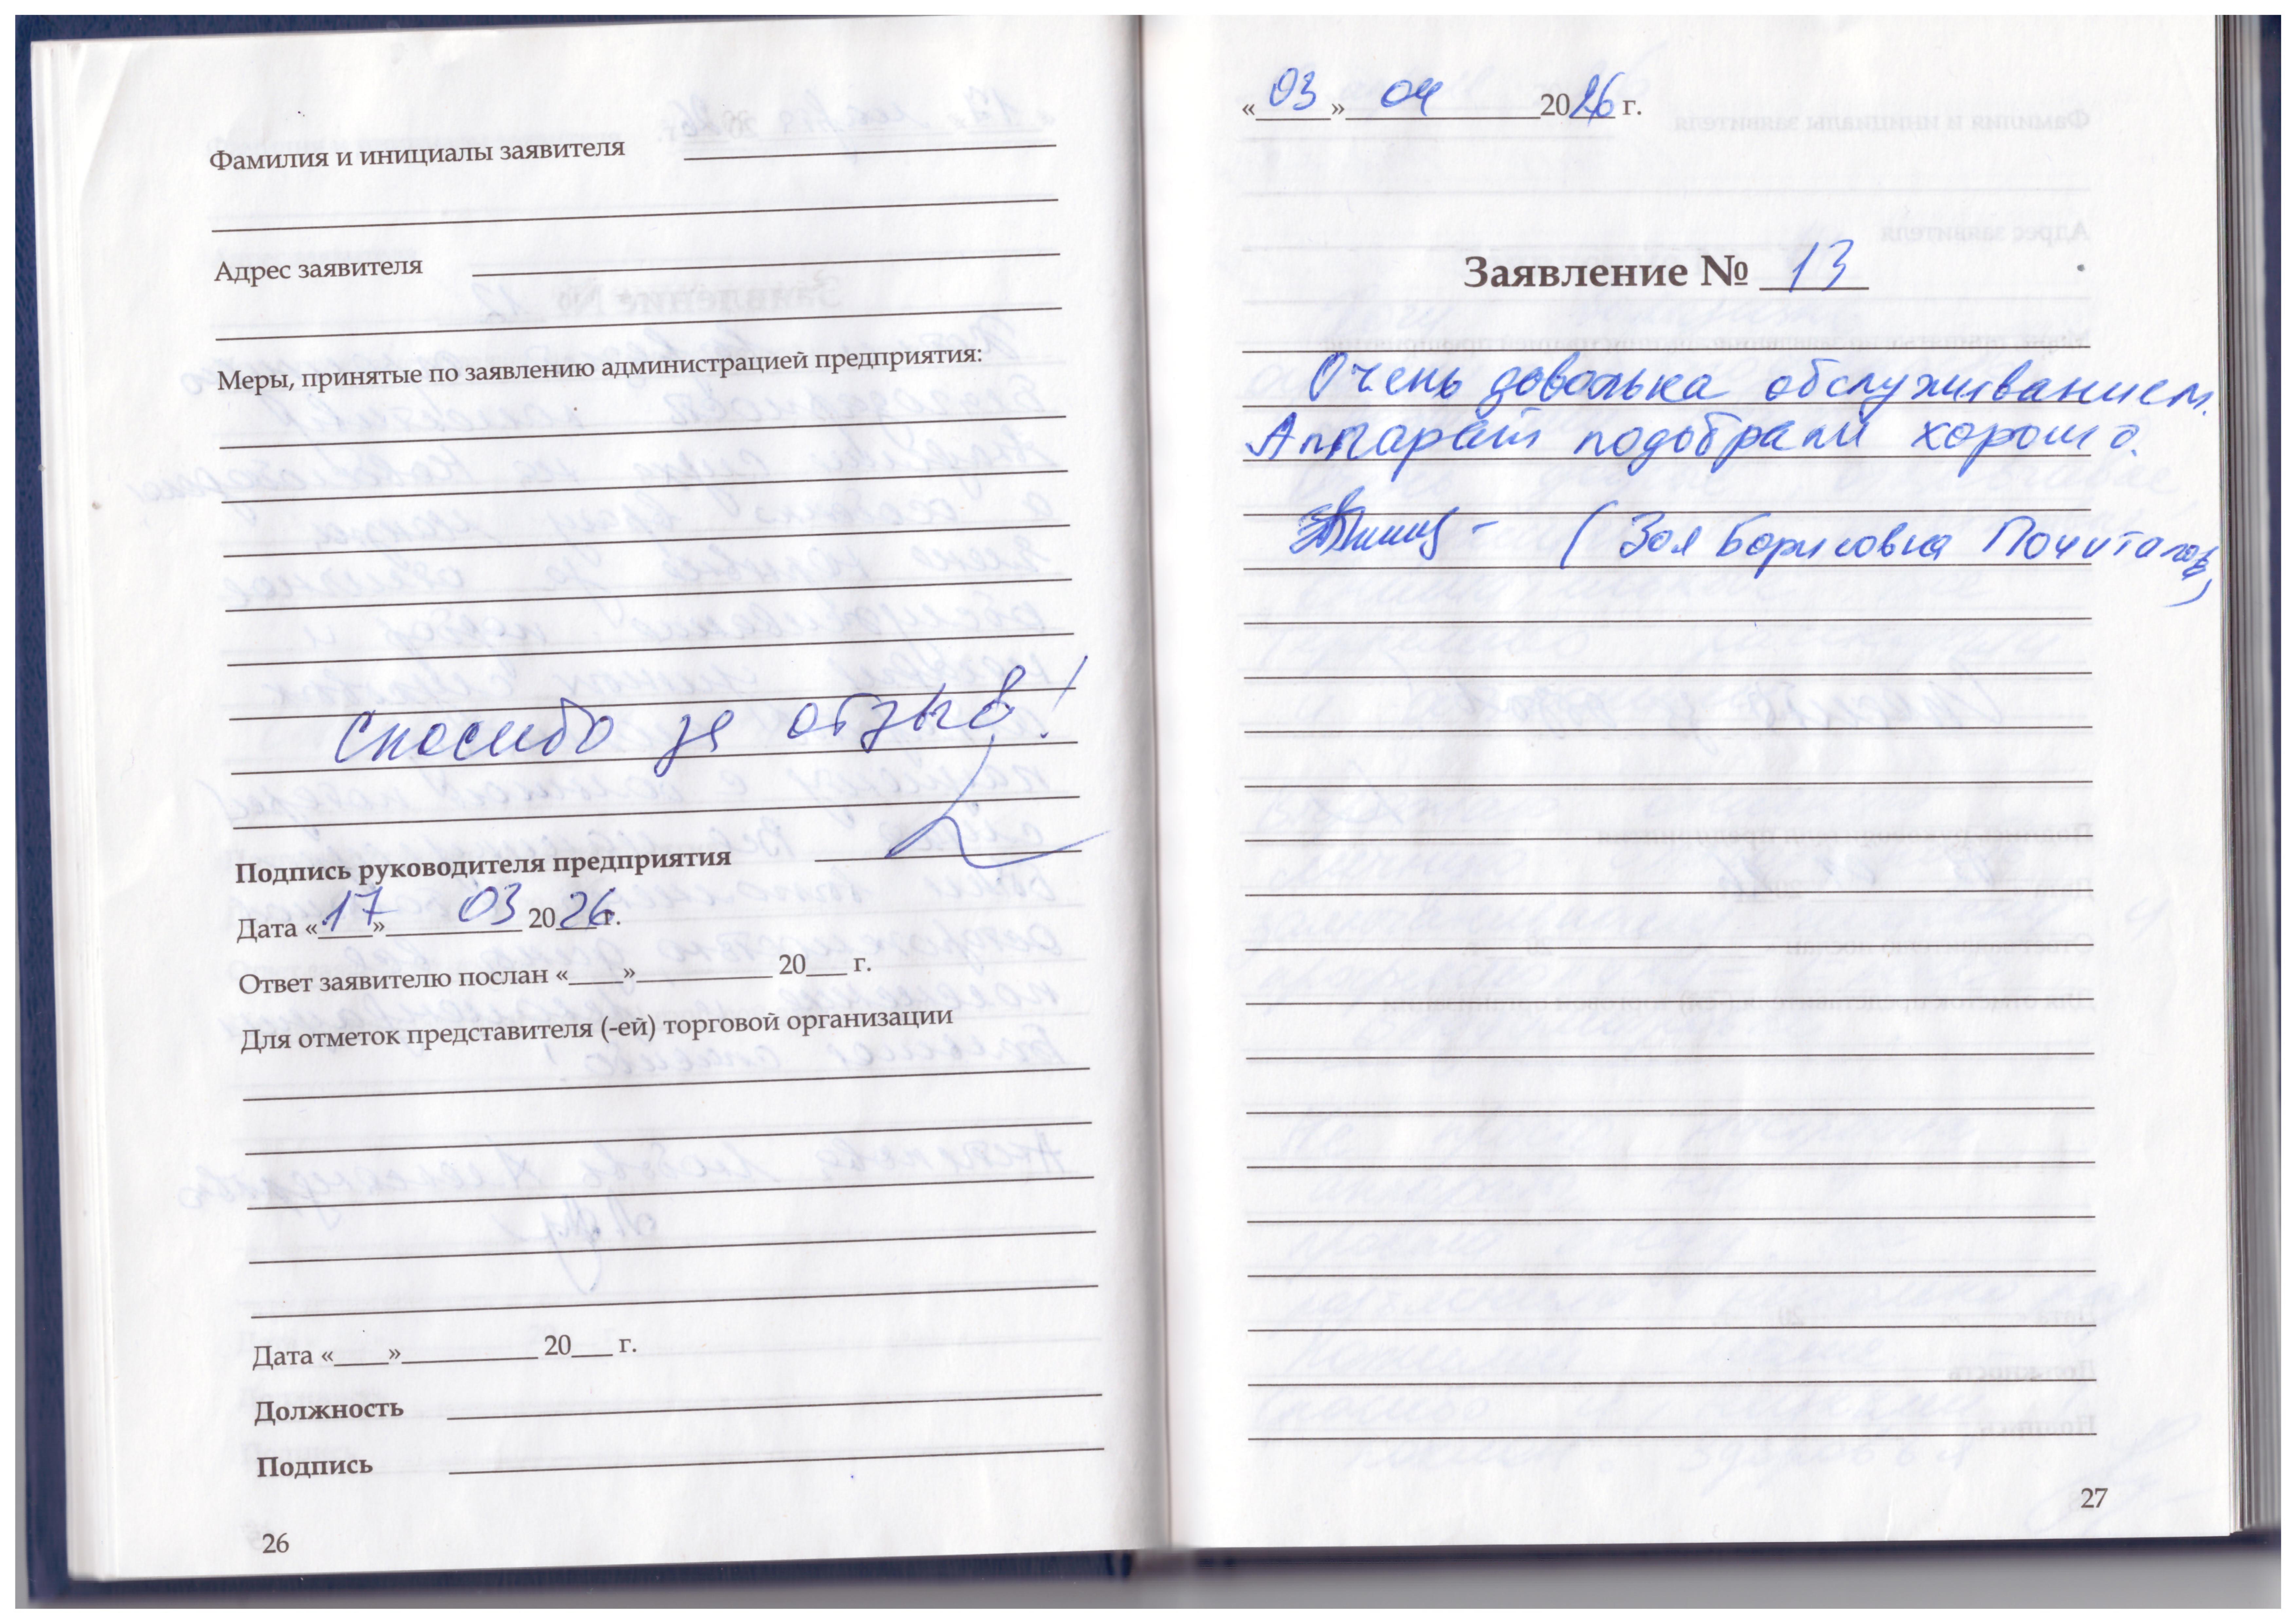 Фамилия и инициалы заявителя
Адрес заявителя
Меры, принятые по заявлению администрацией предприятия:
Спасибо за отзыв!
Подпись руководителя предприятия
Дата «17» 03 2026 г.
Ответ заявителю послан «____»__________ 20___ г.
Для отметок представителя (-ей) торговой организации
Дата «____»__________ 20___ г.
Должность
Подпись
26
«03» 04 2026 г.
Заявление № 13
Очень довольна обслуживанием.
Аппарат подобрали хорошо.
(Зоя Борисовна
27